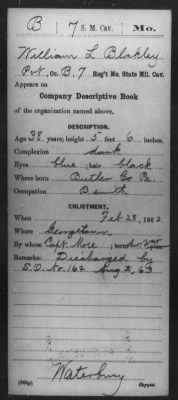 B | 7 S. M. Cav. | Mo.
William L Blakley
Pvt., Co. B, 7 Reg't Mo. State Mil. Cav.
Appears on
Company Descriptive Book
of the organization named above.
DESCRIPTION.
Age 38 years; height 5 feet 6 inches.
Complexion dark
Eyes blue; hair black
Where born Butler Co Pa
Occupation B smith
ENLISTMENT.
When Feb 23, 1862.
Where Georgetown
By whom Capt. More; term
Remarks: Discharged by
S.O. No. 162 Aug 3, 63
Waterbury
Copyist.